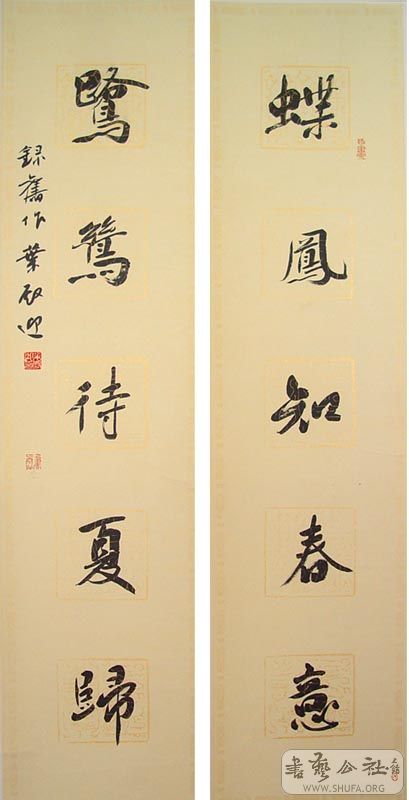 蝶鳳知春意
待夏歸
録舊作葉迎
書藝公社
WWW.SHUFA.ORG